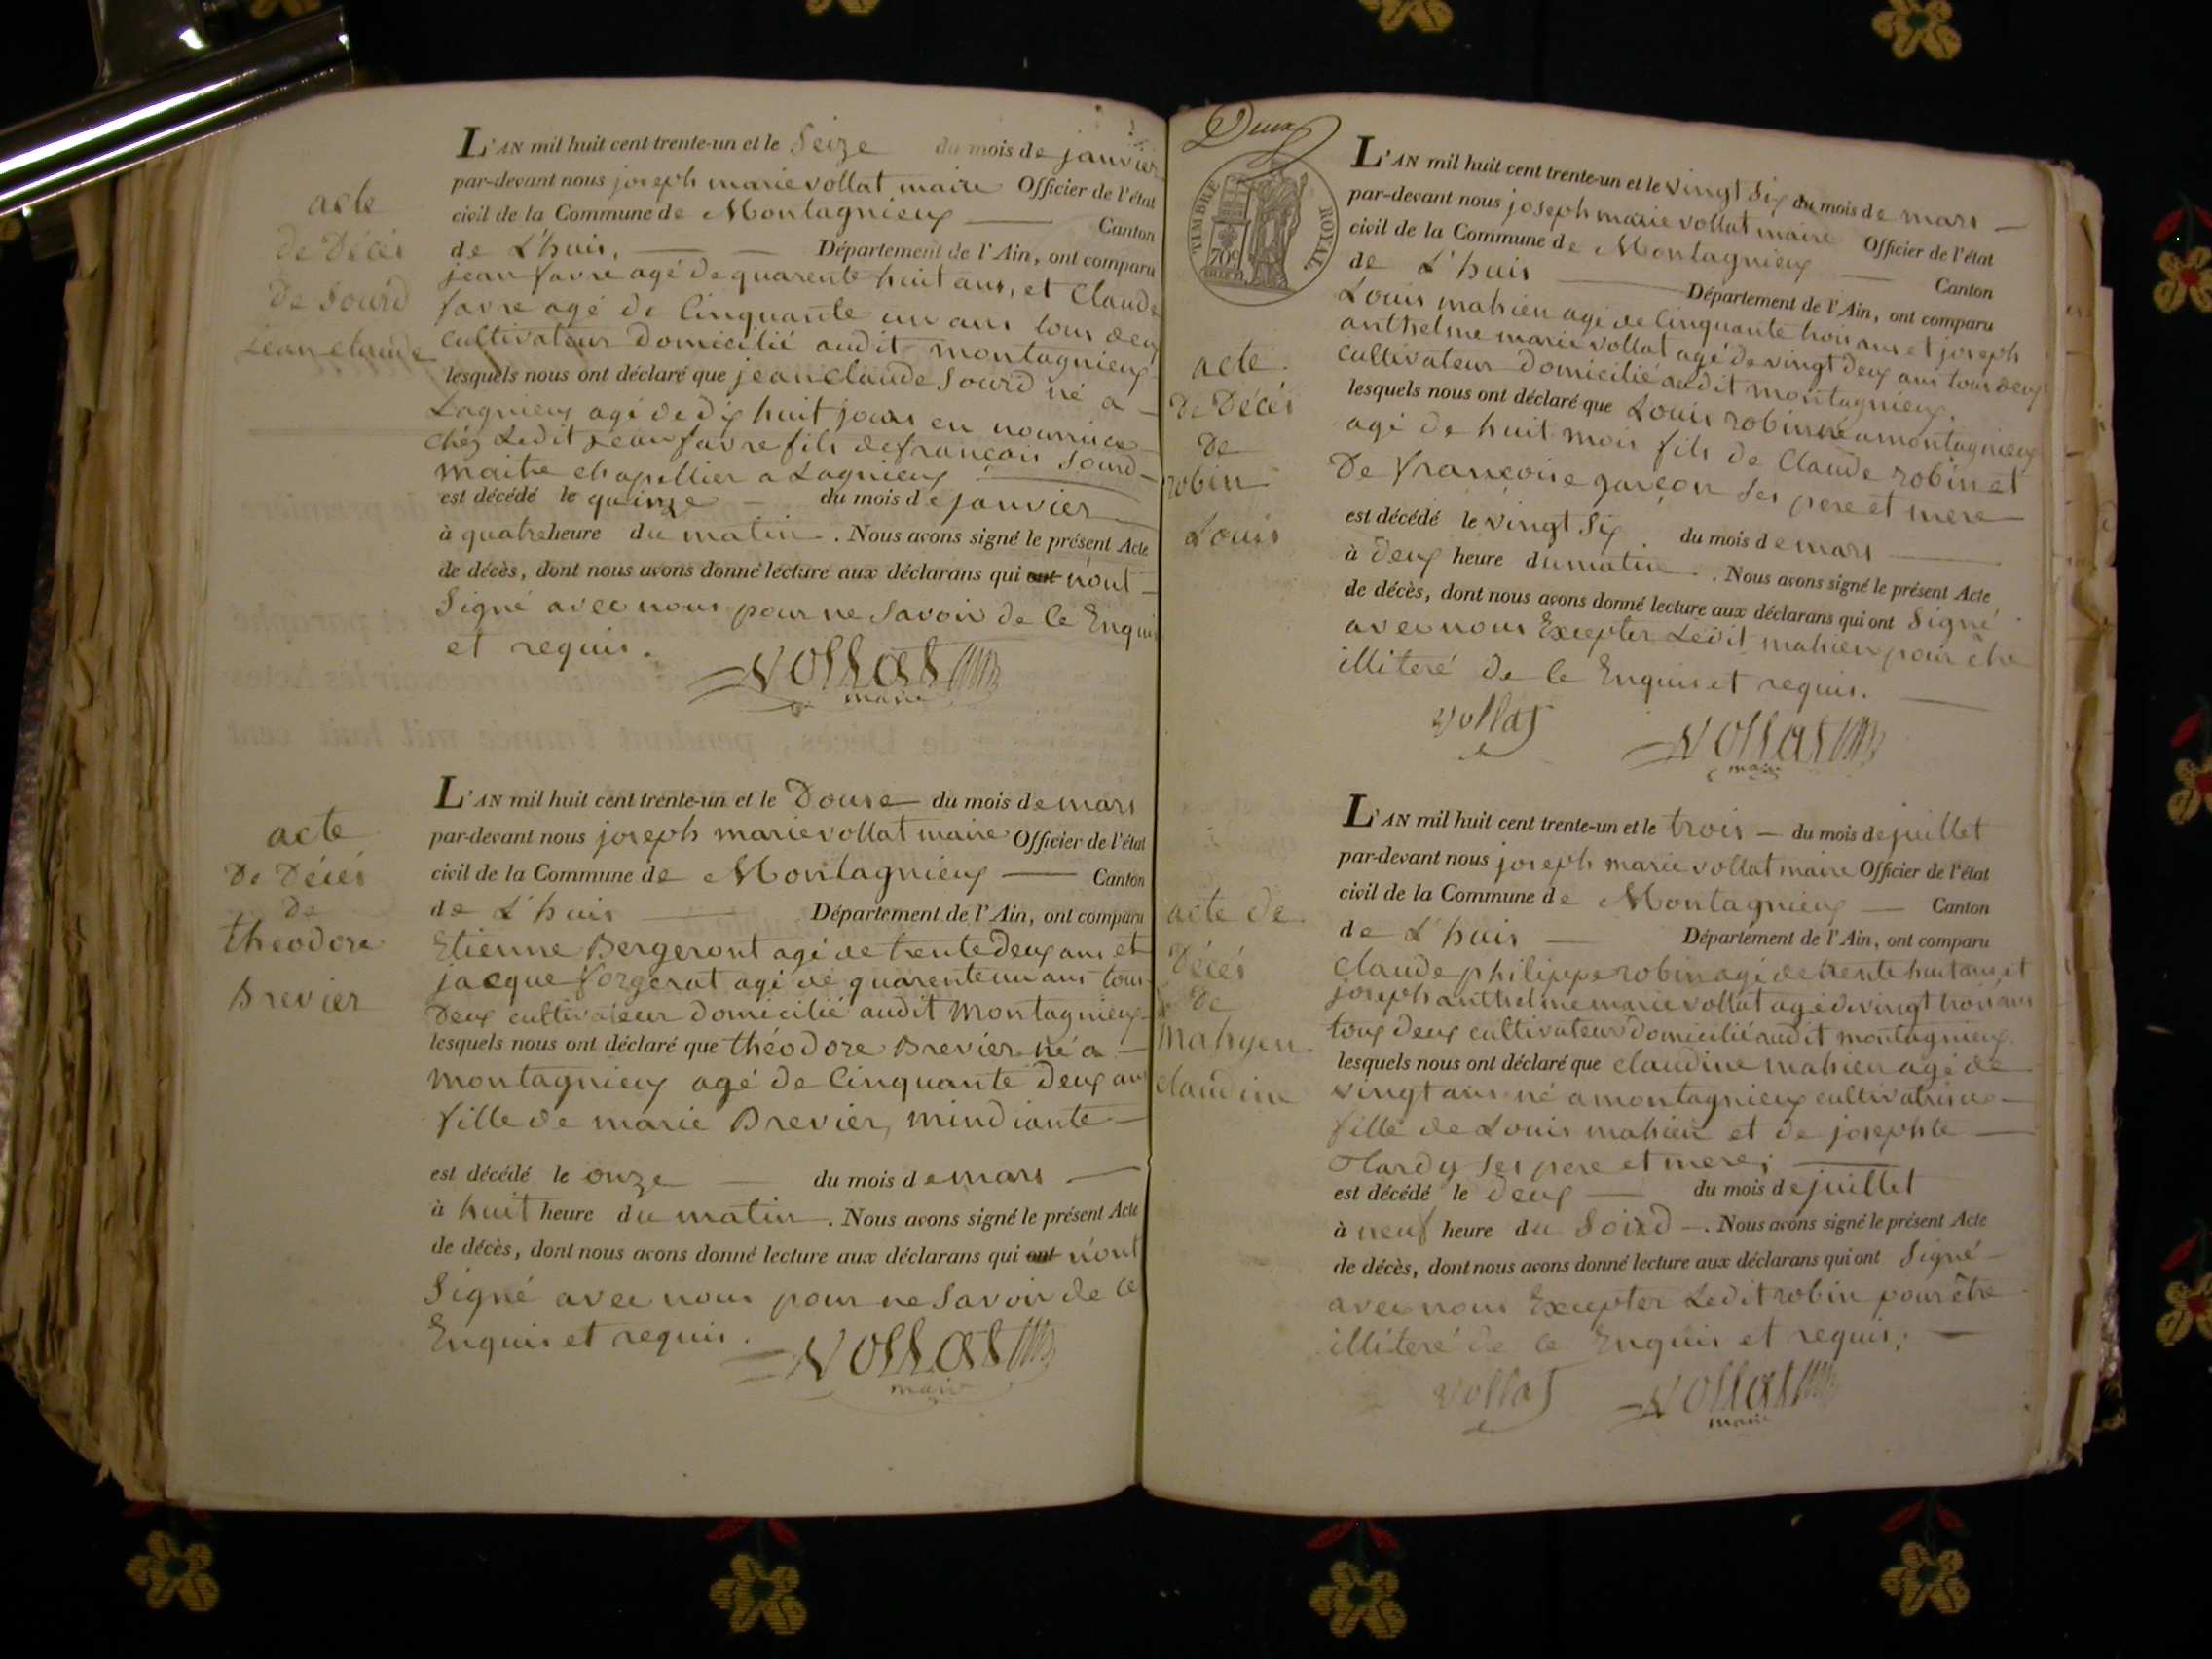 acte
de Décés
de Sourd
jean claude
L'AN mil huit cent trente-un et le Seize du mois de janvier
par-devant nous joseph marie vollat maire Officier de l'état
civil de la Commune de Montagnieux Canton
de L'huis. Département de l'Ain, ont comparu
jean favre agé de quarente huit ans, et Claude
favre agé de Cinquante un ans tous deux
cultivateur Domicilié audit montagnieux
lesquels nous ont déclaré que jean claude Sourd né a
Lagnieux agé de dix huit jours en nourrice
chéz Ledit jean favre fils de françois Sourd
maitre chapellier a Lagnieux
est décédé le quinze du mois de janvier
à quatre heure du matin. Nous avons signé le présent Acte
de décès, dont nous avons donné lecture aux déclarans qui ont n'ont
Signé avec nous pour ne Savoir de ce Enquis
et requis.
Vollat
maire
acte
De Décés
de
théodore
Brevier
L'AN mil huit cent trente-un et le Douse du mois de mars
par-devant nous joseph marie vollat maire Officier de l'état
civil de la Commune de Montagnieux Canton
de L'huis Département de l'Ain, ont comparu
Etienne Bergeront agé de trente Deux ans et
jacque forgerat agé de quarente un ans tous
Deux cultivateur Domicilié audit Montagnieux
lesquels nous ont déclaré que théodore Brevier né a
montagnieux agé de Cinquante Deux ans
fille de marie Brevier, mindiante
est décédé le onze du mois de mars
à huit heure du matin. Nous avons signé le présent Acte
de décès, dont nous avons donné lecture aux déclarans qui ont n'ont
Signé avec nous pour ne Savoir de ce
Enquis et requis.
Vollat
maire
Deux
TIMBRE ROYAL
70c
acte
De Décés
De
robin
Louis
L'AN mil huit cent trente-un et le vingt Six du mois de mars
par-devant nous joseph marie vollat maire Officier de l'état
civil de la Commune de Montagnieux Canton
de L'huis Département de l'Ain, ont comparu
Louis mahieu agé de Cinquante trois ans et joseph
anthelme marie vollat agé de vingt deux ans tous deux
cultivateur Domicilié audit montagnieux.
lesquels nous ont déclaré que Louis robin né a montagnieux
agé de huit mois fils de Claude robin et
De françoise garçon Ses pere et mere
est décédé le vingt Six du mois de mars
à Deux heure du matin. Nous avons signé le présent Acte
de décès, dont nous avons donné lecture aux déclarans qui ont Signé
avec nous Excepter Ledit mahieu pour être
illiteré de ce Enquis et requis.
vollat
Vollat
maire
acte de
Décés
De
mahyeu
claudine
L'AN mil huit cent trente-un et le trois du mois de juillet
par-devant nous joseph marie vollat maire Officier de l'état
civil de la Commune de Montagnieux Canton
de L'huis Département de l'Ain, ont comparu
Claude philippe robin agé de trente huit ans et
joseph anthelme marie vollat agé de vingt trois ans
tous deux cultivateur domicilié audit montagnieux
lesquels nous ont déclaré que claudine mahieu agé de
vingt ans né a montagnieux cultivatrice
fille de Louis mahieu et de josephte
Hardy Ses pere et mere;
est décédé le deux du mois de juillet
à neuf heure du Soird. Nous avons signé le présent Acte
de décès, dont nous avons donné lecture aux déclarans qui ont Signé
avec nous Excepter Ledit robin pour être
illiteré de ce Enquis et requis;
vollat
Vollat
maire